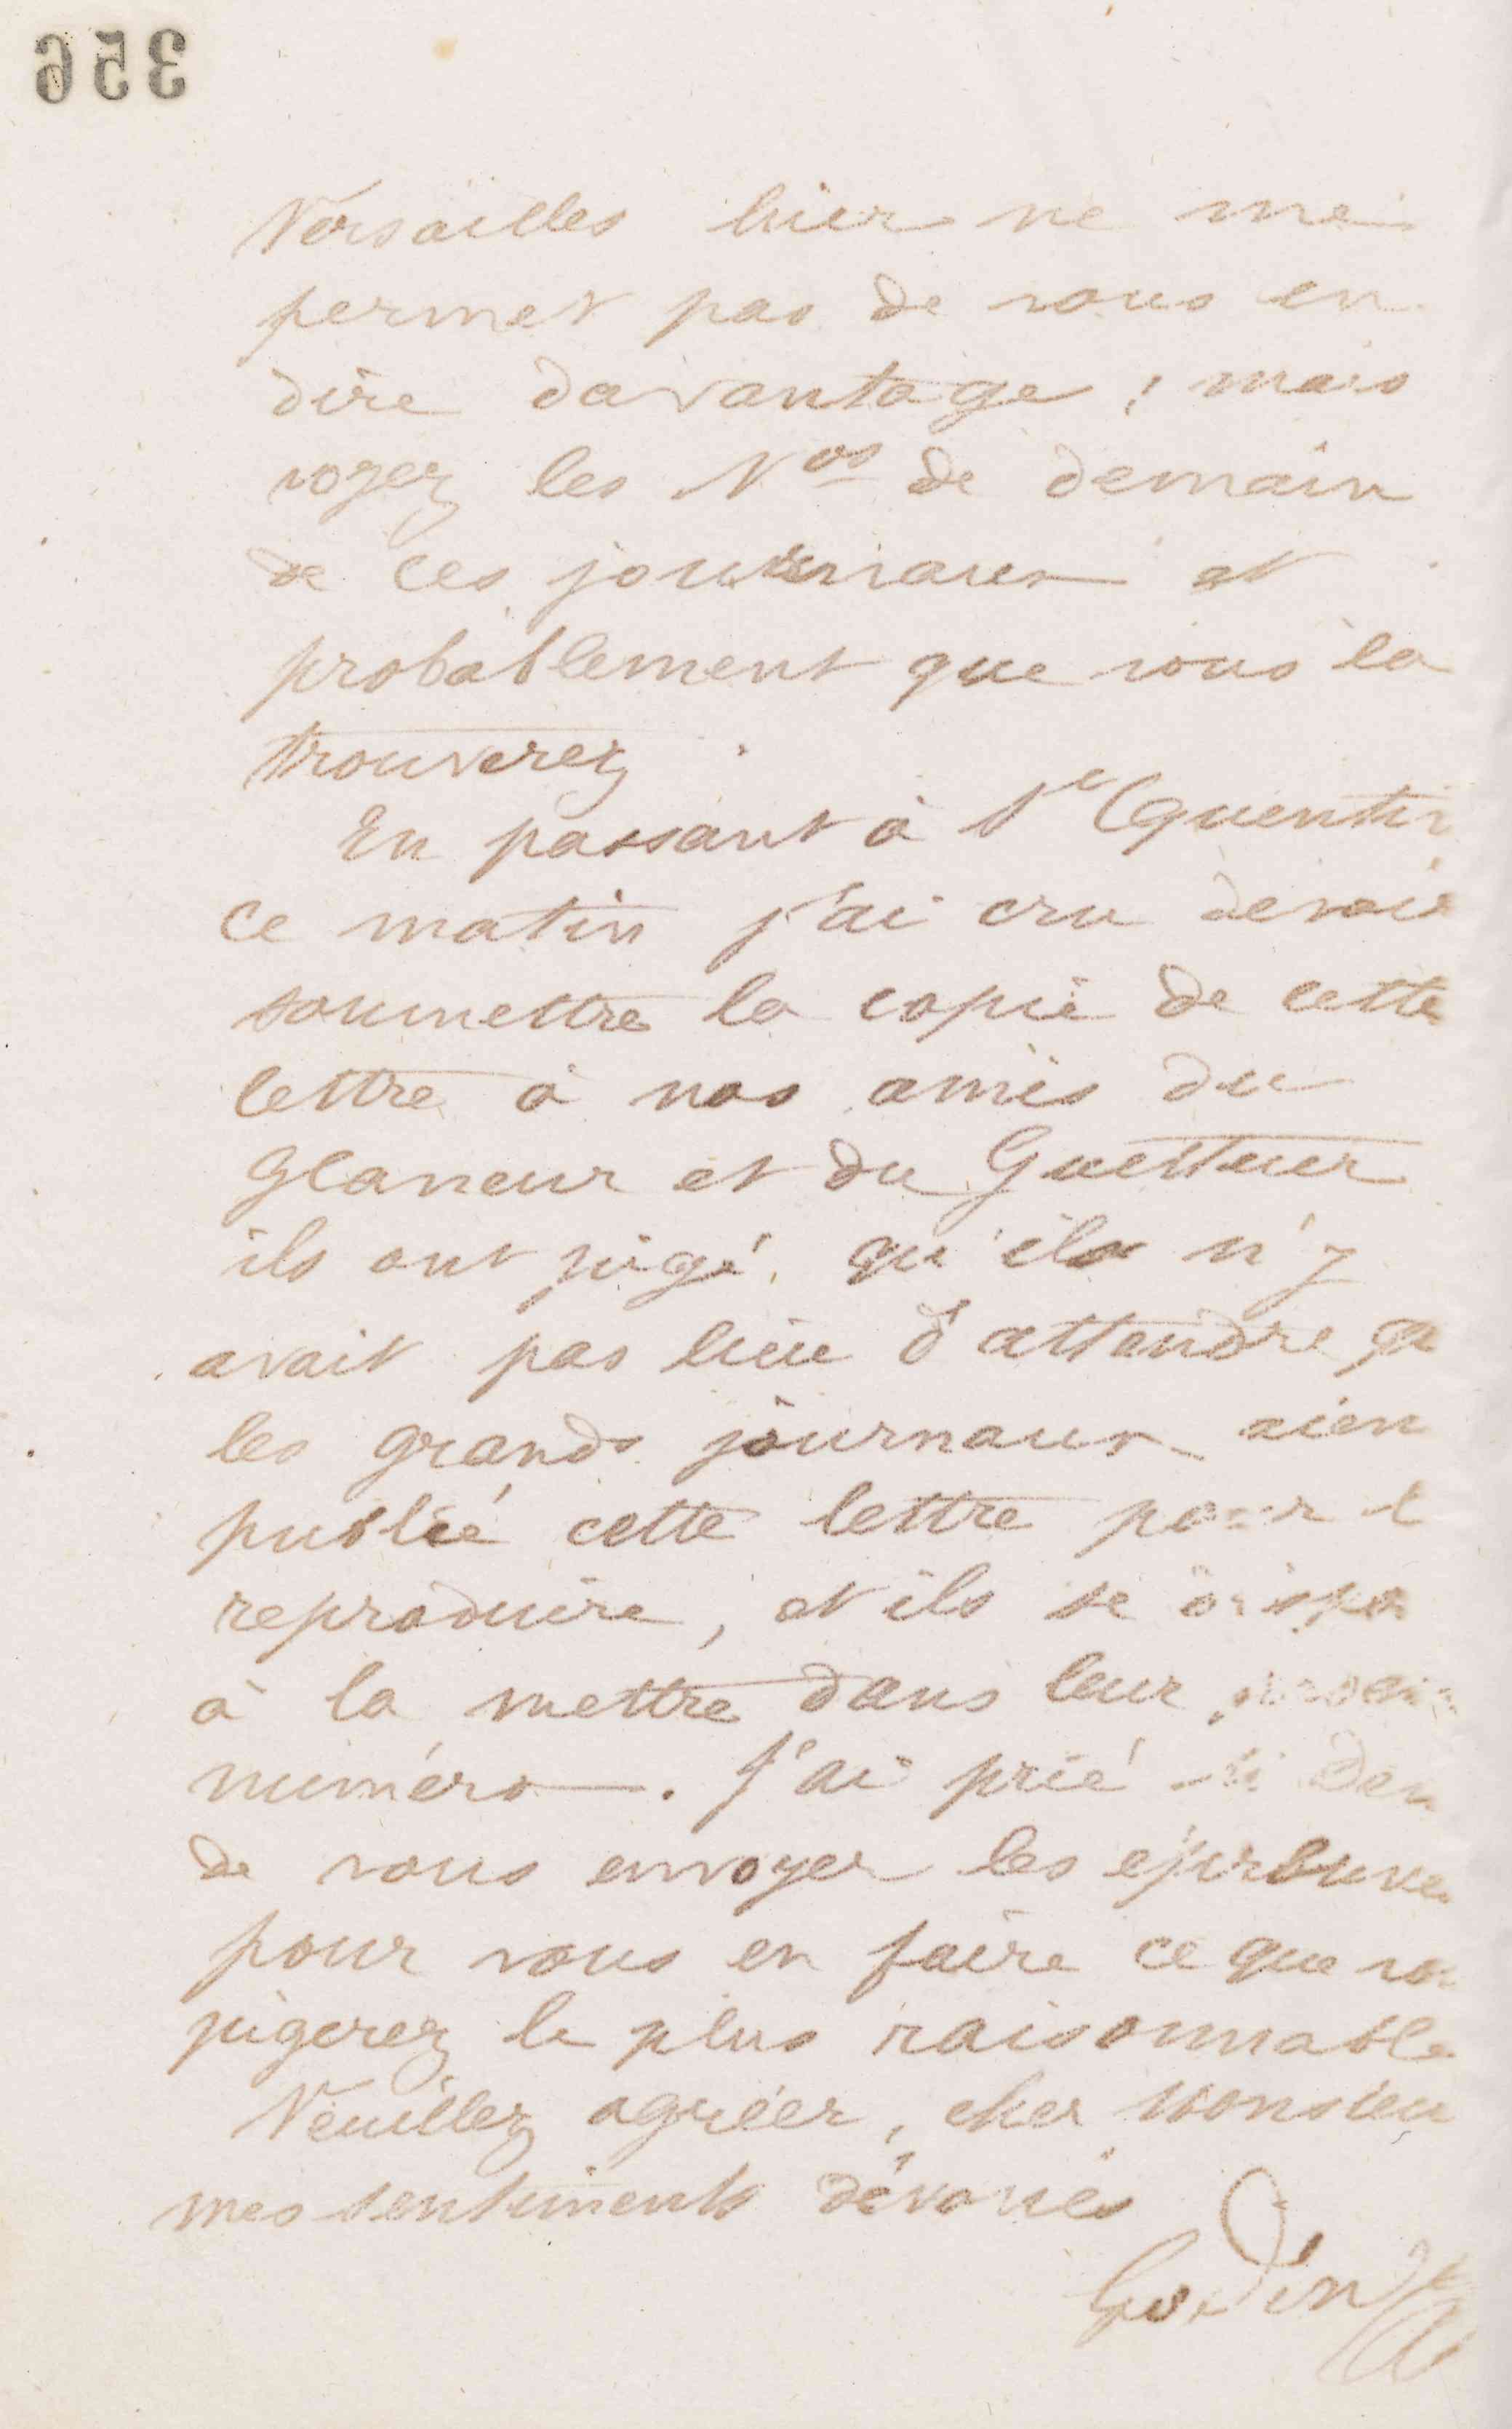 356
Versailles hier ne me
permet pas de vous en
dire davantage ; mais
voyez les Nos de demain
de ces journaux et
probablement que vous la
trouverez
En passant à St Quentin
ce matin j'ai cru devoir
soumettre la copie de cette
lettre à nos amis du
Glaneur et du Guetteur
ils ont jugé qu'il n'y
avait pas lieu d'attendre q
les grands journaux aien
publié cette lettre pour l
reproduire, et ils se dispo
à la mettre dans leur
numéro. J'ai prié
de vous envoyer les épreuves
pour vous en faire ce que vo
jugerez le plus raisonnable
Veuillez agréer, cher Monsieu
mes sentiments dévoués
Godin